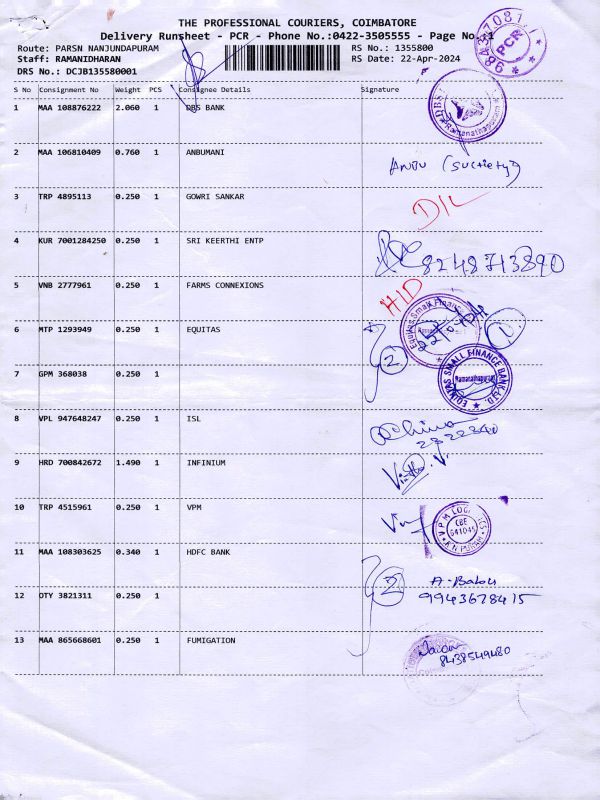 THE PROFESSIONAL COURIERS, COIMBATORE
Delivery Runsheet - PCR - Phone No.:0422-3505555 - Page No.:1
Route: PARSN NANJUNDAPURAM RS No.: 1355800
Staff: RAMANIDHARAN RS Date: 22-Apr-2024
DRS No.: DCJB135580001
PCR
S No Consignment No Weight PCS Consignee Details Signature
1 MAA 108876222 2.060 1 DBS BANK
Ramanathapuram
2 MAA 106810409 0.760 1 ANBUMANI
3 TRP 4895113 0.250 1 GOWRI SANKAR D/L
4 KUR 7001284250 0.250 1 SRI KEERTHI ENTP 8248713890
5 VNB 2777961 0.250 1 FARMS CONNEXIONS H/D
6 MTP 1293949 0.250 1 EQUITAS 2
7 GPM 368038 0.250 1
EQUITAS SMALL FINANCE BANK LTD.
Ramanathapuram
8 VPL 947648247 0.250 1 ISL
9 HRD 700842672 1.490 1 INFINIUM
10 TRP 4515961 0.250 1 VPM
CBE
641045
11 MAA 108303625 0.340 1 HDFC BANK
2 A. Babu
12 DTY 3821311 0.250 1 9943678415
13 MAA 865668601 0.250 1 FUMIGATION
8438549480